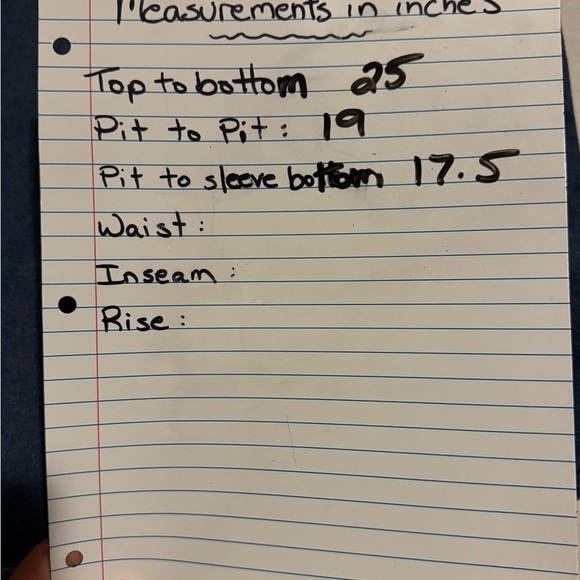 Measurements in inches
Top to bottom 25
Pit to Pit: 19
Pit to sleeve bottom 17.5
Waist:
Inseam:
Rise: